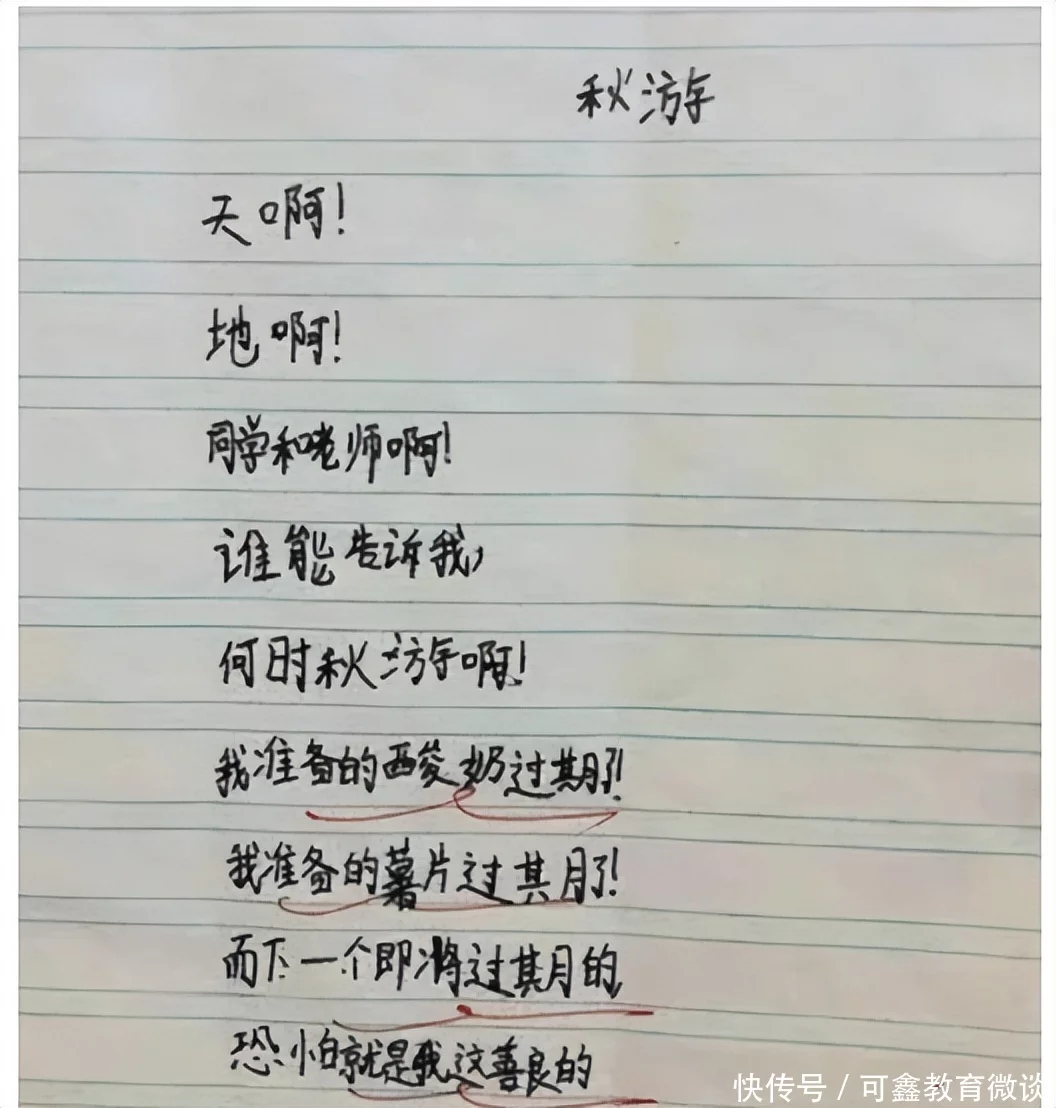 秋游
天啊!
地啊!
同学和老师啊!
谁能告诉我,
何时秋游啊!
我准备的酸奶过期了!
我准备的薯片过期了!
而下一个即将过期的
恐怕就是我这善良的
快传号 / 可鑫教育微谈